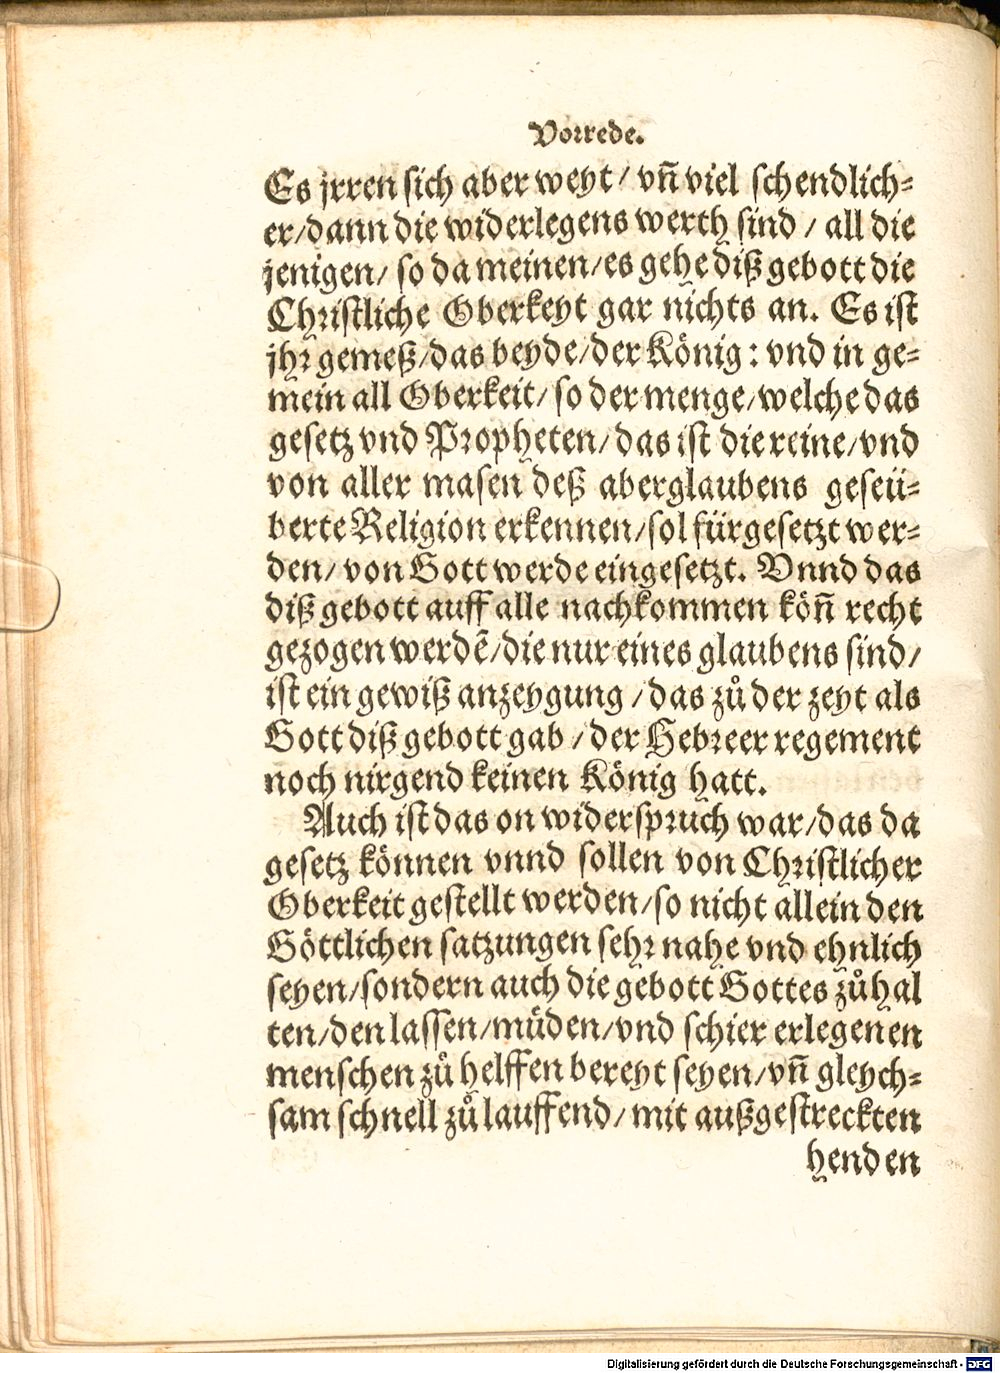 Vorrede.
Es jrren sich aber weyt / vñ viel schendlich-
er/dann die widerlegens werth sind / all die
jenigen/ so da meinen/es gehe diß gebott die
Christliche Oberkeyt gar nichts an. Es ist
jhr gemeß/das beyde/der König: vnd in ge-
mein all Oberkeit/ so der menge/welche das
gesetz vnd Propheten/ das ist die reine/vnd
von aller masen deß aberglaubens geseü-
berte Religion erkennen/sol fürgesetzt wer-
den/ von Gott werde eingesetzt. Vnnd das
diß gebott auff alle nachkommen köñ recht
gezogen werdẽ/die nur eines glaubens sind/
ist ein gewiß anzeygung /das zů der zeyt als
Gott diß gebott gab /der Hebreer regement
noch nirgend keinen König hatt.
Auch ist das on widerspruch war/das da
gesetz können vnnd sollen von Christlicher
Oberkeit gestellt werden/so nicht allein den
Göttlichen satzungen sehr nahe vnd ehnlich
seyen/sondern auch die gebott Gottes zů hal
ten/den lassen/müden/vnd schier erlegenen
menschen zů helffen bereyt seyen/vñ gleych-
sam schnell zů lauffend/ mit außgestreckten
henden
Digitalisierung gefördert durch die Deutsche Forschungsgemeinschaft - DFG